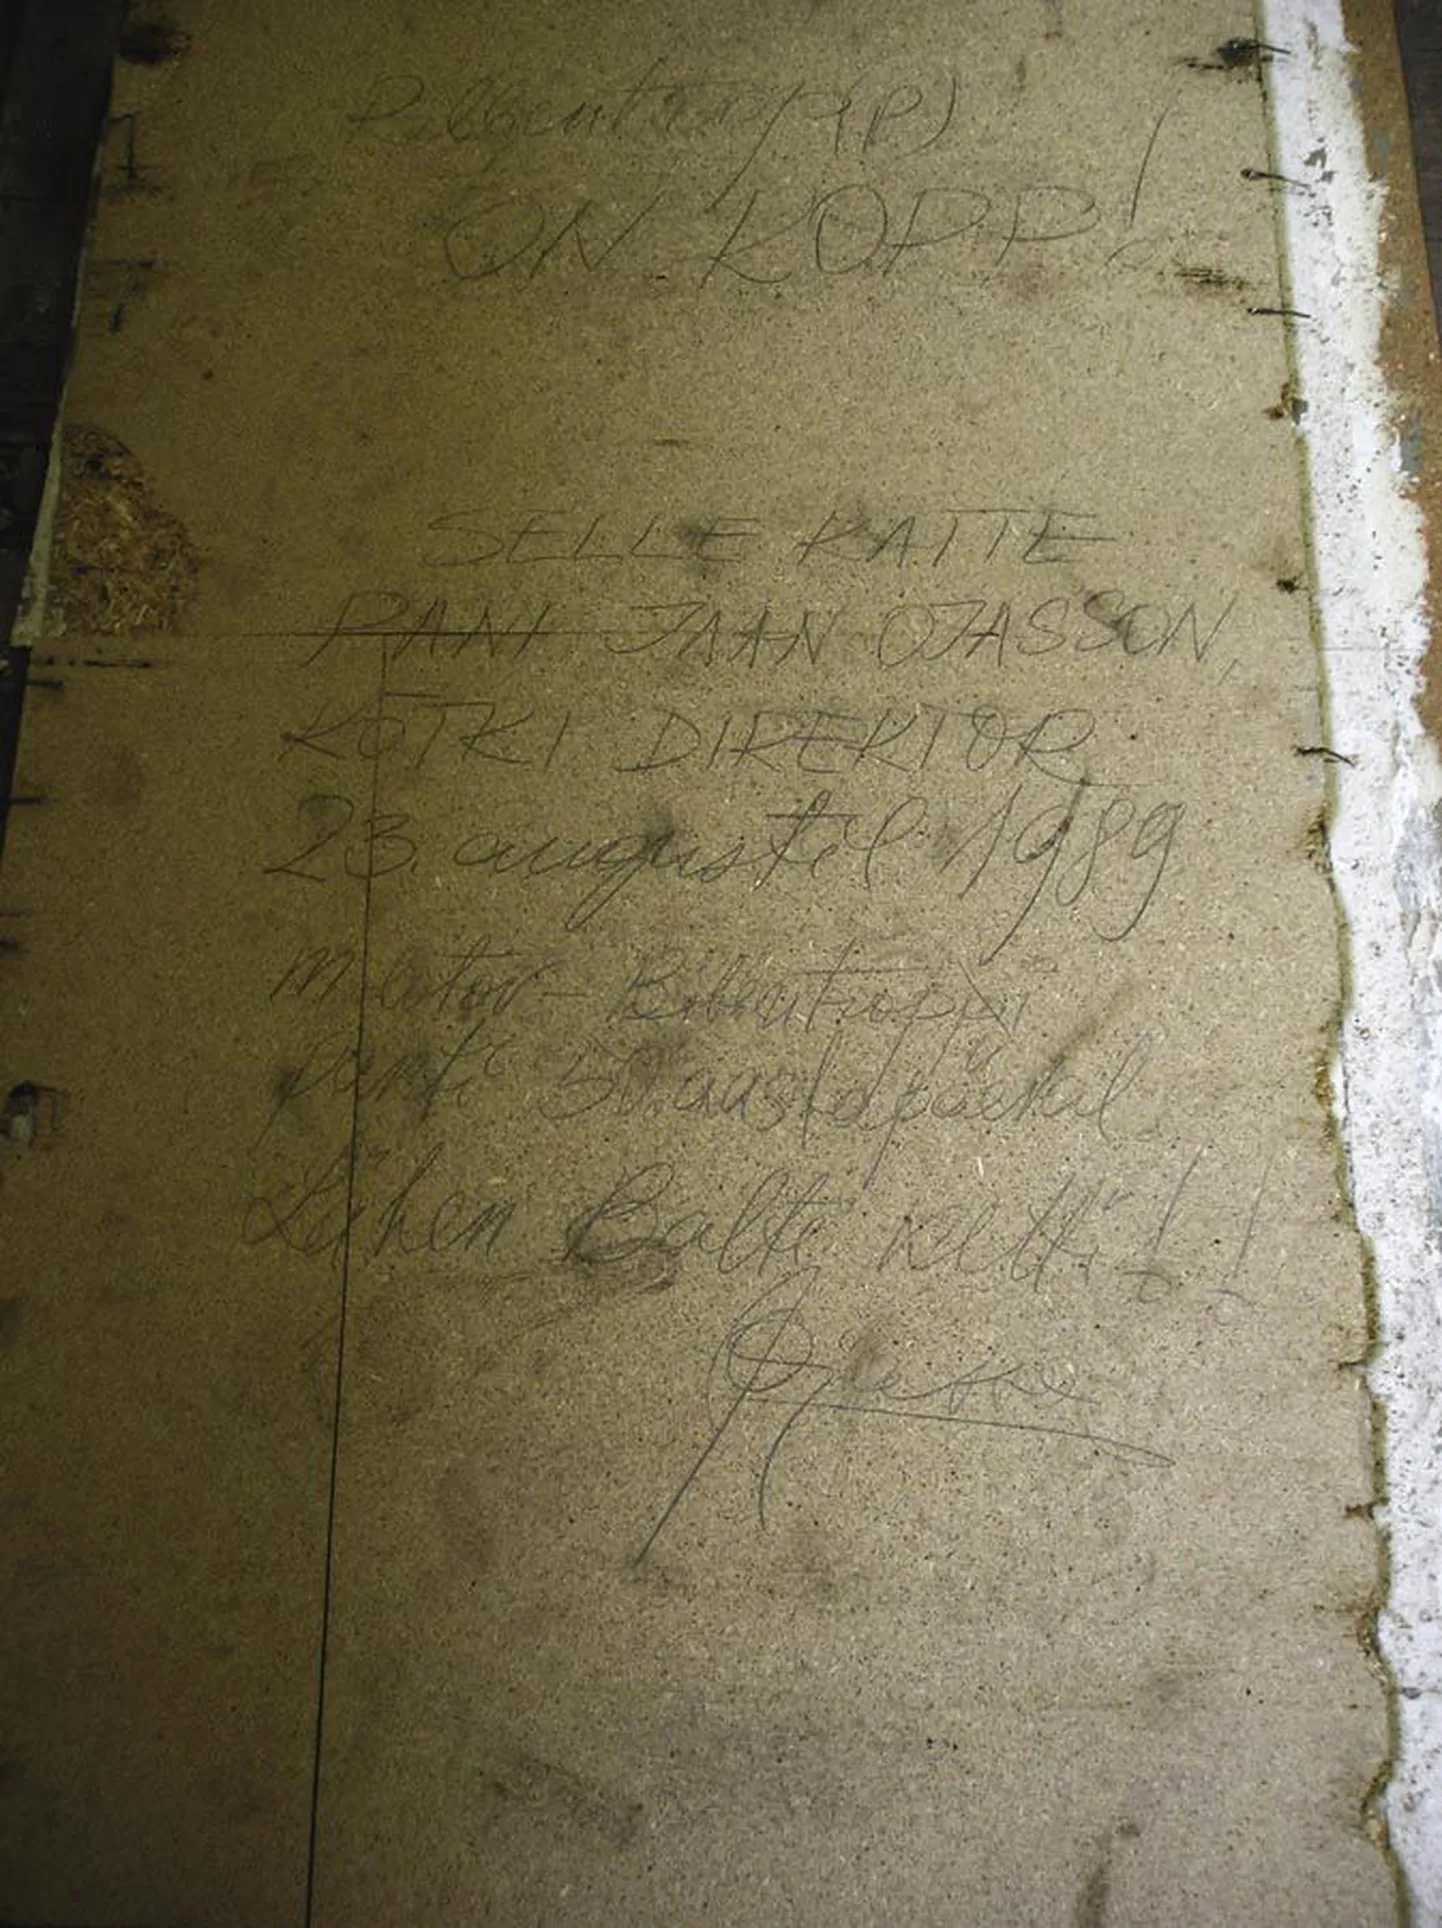 Ribbentrop(p)
ON KOPP!
SELLE KATTE
PANI JAAN OJASSON,
KÕTKI DIREKTOR
23. augustil 1989
Molotov-Ribbentroppi
pakti 50. aastapäeval.
Lähen Balti ketti!!